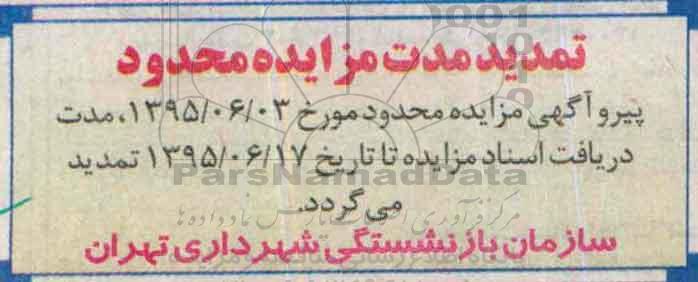 تمدید مدت مزایده محدود
پیرو آگهی مزایده محدود مورخ ۱۳۹۵/۰۶/۰۳، مدت
دریافت اسناد مزایده تا تاریخ ۱۳۹۵/۰۶/۱۷ تمدید
ParsNamadData
می گردد.
سازمان بازنشستگی شهرداری تهران